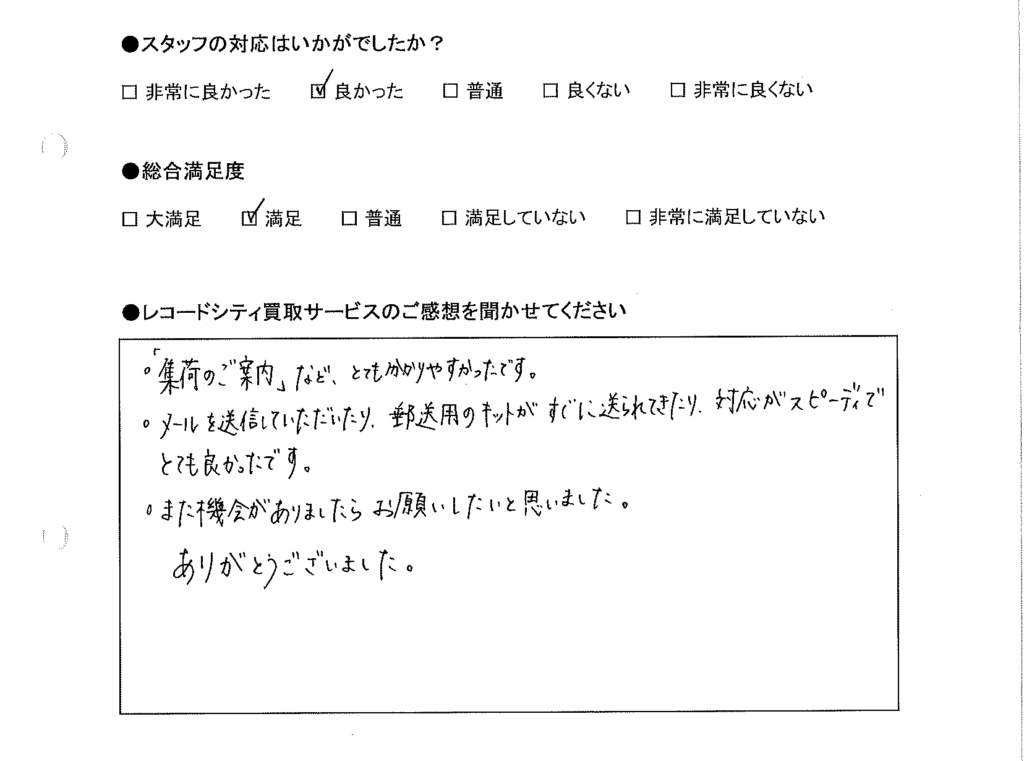 ●スタッフの対応はいかがでしたか？
□ 非常に良かった ☑ 良かった □ 普通 □ 良くない □ 非常に良くない
●総合満足度
□ 大満足 ☑ 満足 □ 普通 □ 満足していない □ 非常に満足していない
●レコードシティ買取サービスのご感想を聞かせてください
。「集荷のご案内」など、とても分かりやすかったです。
。メールを送信していただいたり、郵送用のキットがすぐに送られてきたり、対応がスピーディで
とても良かったです。
。また機会がありましたらお願いしたいと思いました。
ありがとうございました。